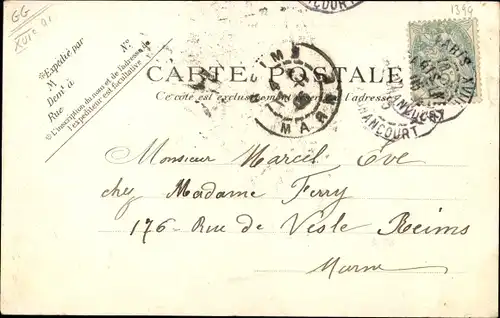 GG
XVIe a1
1394
*Expédié par
M
Demt à
Rue
No
*L'inscription du nom et de l'adresse de
l'expéditeur est facultative
CARTE POSTALE
Ce côté est exclusivement réservé à l'adresse
REIMS
MARNE
PARIS XVIII
Monsieur Marcel Eve
chez Madame Ferry
176 - Rue de Vesle Reims
Marne